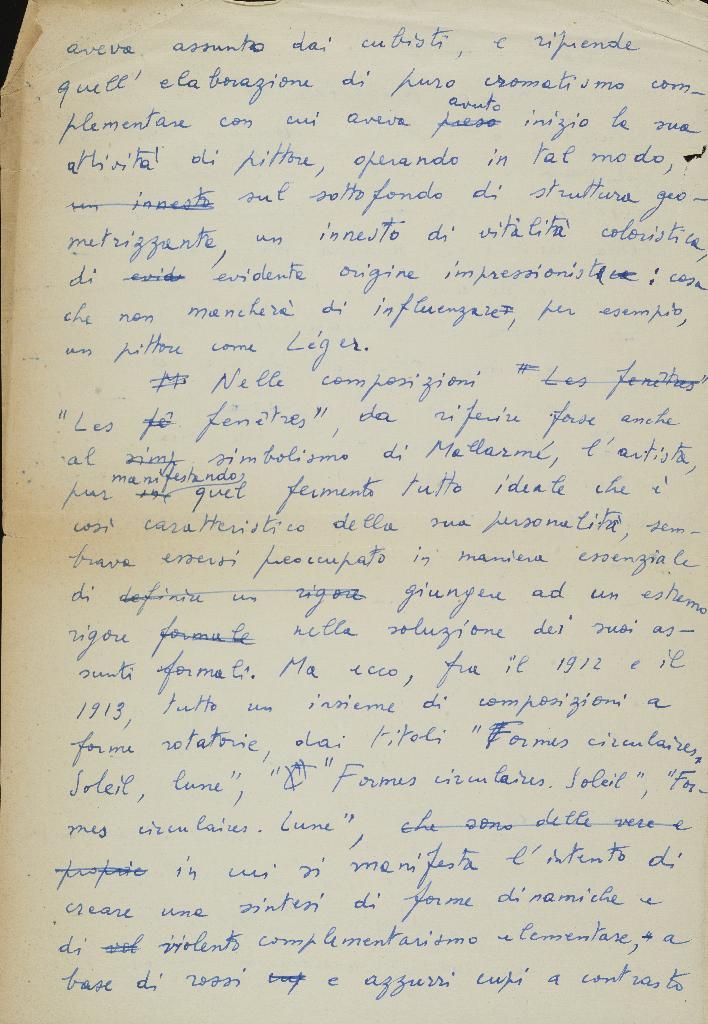 aveva assunto dai cubisti, e riprende
quell'elaborazione di puro cromatismo com-
plementare con cui aveva preso avuto inizio la sua
attività di pittore, operando in tal modo,
un innesto sul sottofondo di struttura geo-
metrizzante, un innesto di vitalità coloristica,
di evid evidente origine impressionista: cosa
che non mancherà di influenzare, per esempio,
un pittore come Léger.
Nelle composizioni "Les fenêtres"
"Les fê fenêtres", da riferire forse anche
al simb simbolismo di Mallarmé, l'artista,
pur manifestando quel fermento tutto ideale che è
così caratteristico della sua personalità, sem-
brava essersi preoccupato in maniera essenziale
di definire un rigore giungere ad un estremo
rigore formale nella soluzione dei suoi as-
sunti formali. Ma ecco, fra il 1912 e il
1913, tutto un insieme di composizioni a
forme rotatorie, dai titoli "Formes circulaires.
Soleil, lune", "Formes circulaires. Soleil", "For-
mes circulaires. Lune", che sono delle vere e
proprie in cui si manifesta l'intento di
creare una sintesi di forme dinamiche e
di violento complementarismo elementare, a
base di rossi e azzurri cupi a contrasto